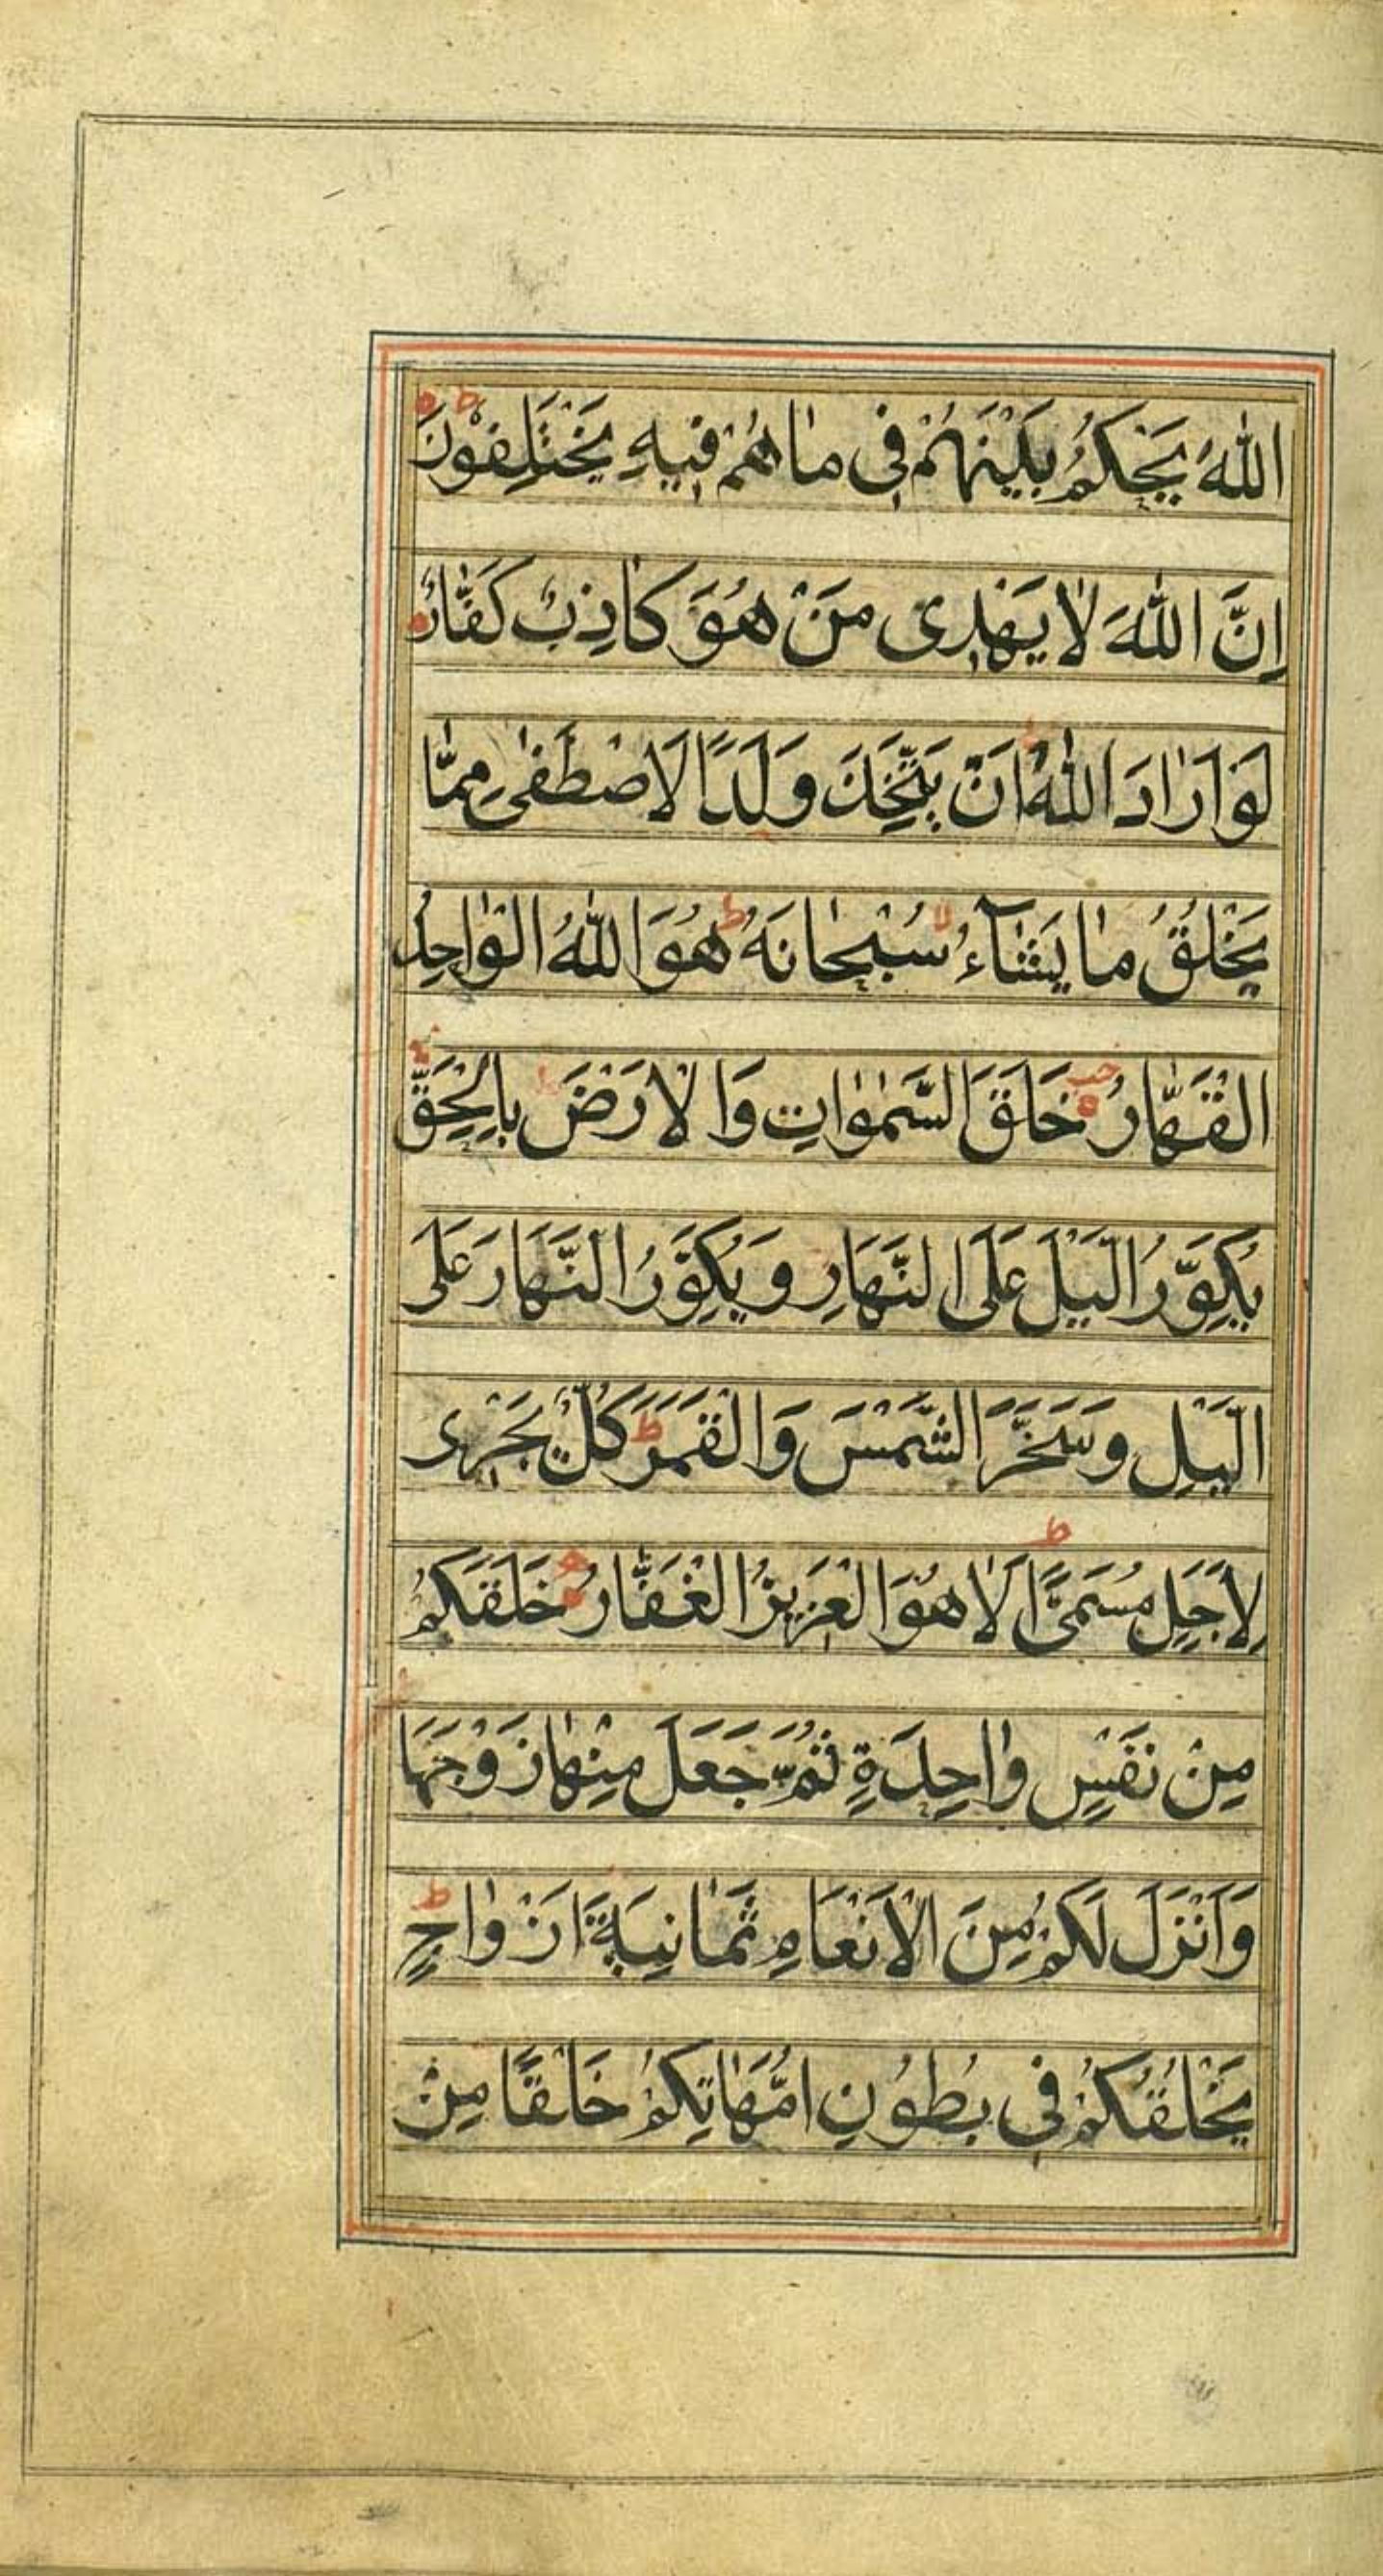 اللهَ يَحْكُمُ بَيْنَهُمْ فِى مٰا هُمْ فِيهِ يَخْتَلِفُوْنَ
اِنَّ اللهَ لٰا يَهْدِى مَنْ هُوَ كٰاذِبٌ كَفّٰارٌ
لَوْ اَرٰادَ اللهُ اَنْ يَتَّخِذَ وَلَدًا لَاصْطَفٰى مِمّٰا
يَخْلُقُ مٰا يَشٰآءُ سُبْحٰانَهُ هُوَ اللهُ الْوٰاحِدُ
الْقَهّٰارُ خَلَقَ السَّمٰوٰاتِ وَالْاَرْضَ بِالْحَقِّ
يُكَوِّرُ الَّيْلَ عَلَى النَّهَارِ وَيُكَوِّرُ النَّهَارَ عَلَى
الَّيْلِ وَسَخَّرَ الشَّمْسَ وَالْقَمَرَ كُلٌّ يَجْرِى
لِاَجَلٍ مُسَمًّى اَلٰا هُوَ الْعَزِيزُ الْغَفّٰارُ خَلَقَكُمْ
مِنْ نَفْسٍ وٰاحِدَةٍ ثُمَّ جَعَلَ مِنْهٰا زَوْجَهَا
وَاَنْزَلَ لَكُمْ مِنَ الْاَنْعَامِ ثَمٰانِيَةَ اَزْوٰاجٍ
يَخْلُقُكُمْ فِى بُطُوُنِ اُمَّهٰاتِكُمْ خَلْقًا مِنْ